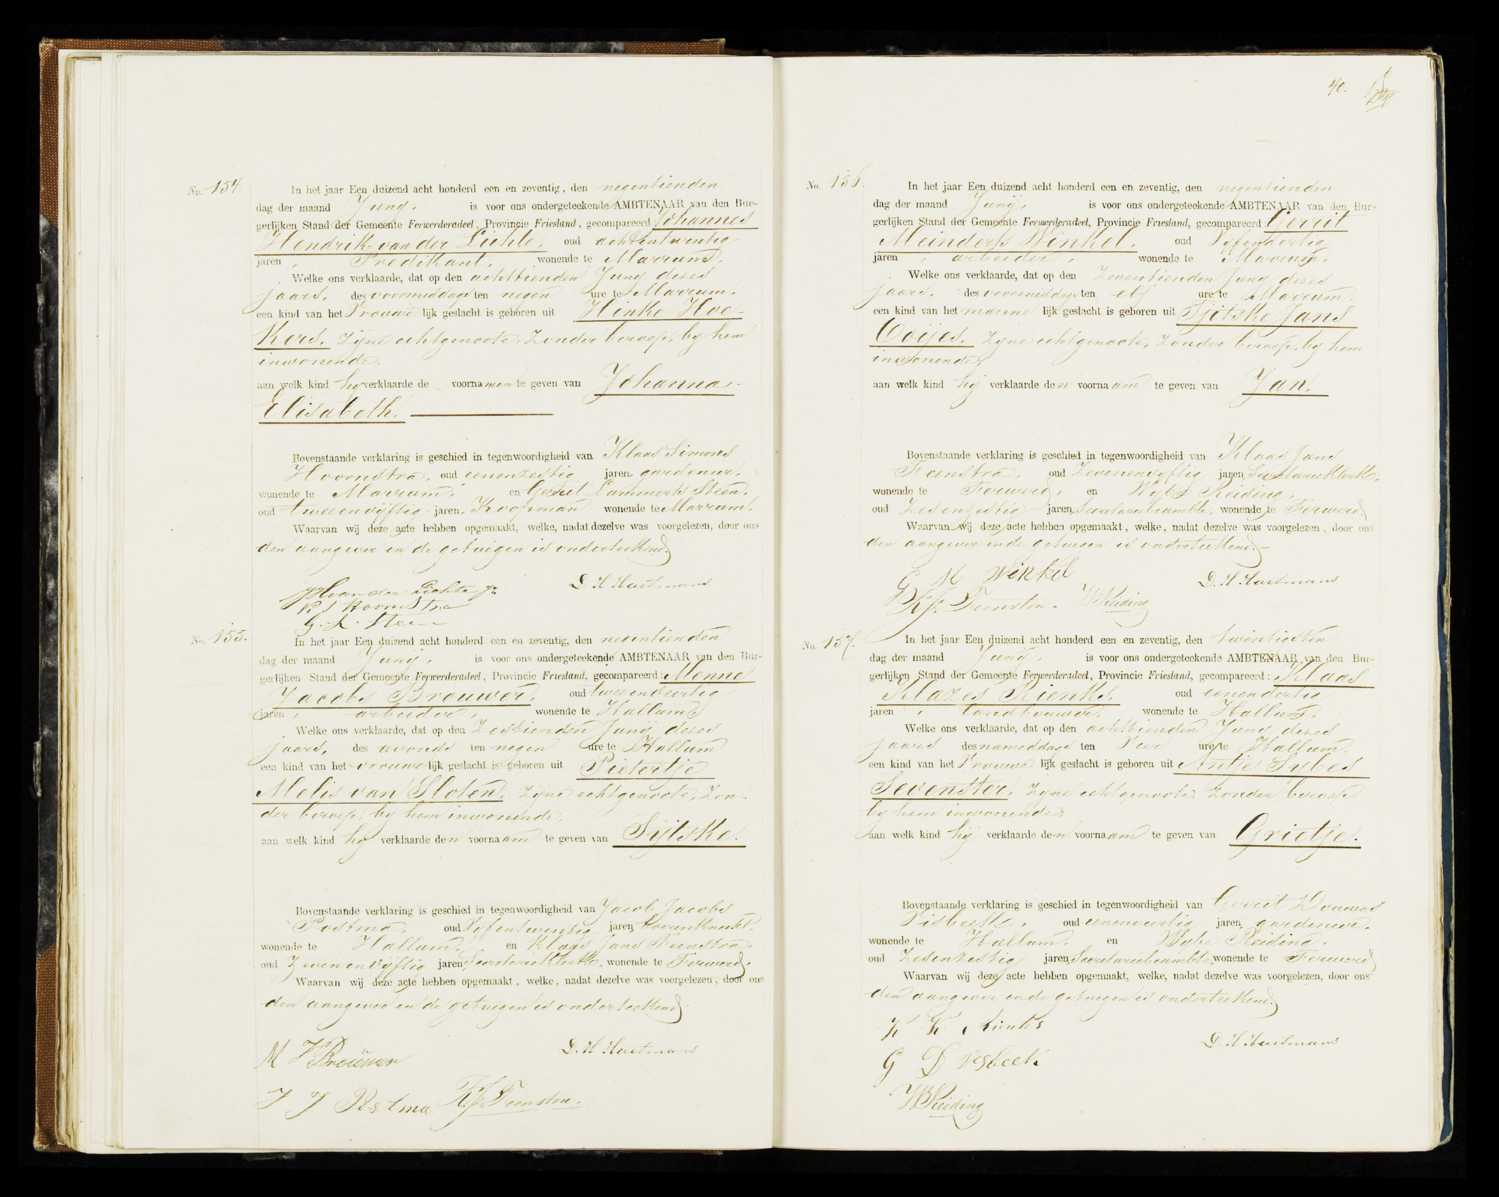 No. 154. In het jaar Een duizend acht honderd een en zeventig, den negentienden
dag der maand Junij. is voor ons ondergeteekende AMBTENAAR van den Bur-
gerlijken Stand der Gemeente Ferwerderadeel, Provincie Friesland, gecompareerd Johannes
Hendrik van der Lichte, oud achtentwintig
jaren, Predikant, wonende te Marrum.
Welke ons verklaarde, dat op den achttienden Junij dezes
jaars, des voormiddags ten negen ure te Marrum.
een kind van het Vrouwelijk geslacht is geboren uit Hinke Hoe-
kers. Zijne echtgenoote, Zonder beroep, bij hem
inwonende,
aan welk kind hij verklaarde de voornamen te geven van Johanna
Elisabeth.
Bovenstaande verklaring is geschied in tegenwoordigheid van Klaas Simons
Hoornstra, oud eenenzestig jaren gardenier,
wonende te Marrum. en Gerrit Lammerts Steen,
oud tweeenvijftig jaren, Koopman wonende te Marrum.
Waarvan wij deze acte hebben opgemaakt, welke, nadat dezelve was voorgelezen, door ons
den aangever en de getuigen is onderteekend
JH van der Lichte jr D. H. Hartmans
K S Hoornstra
G. L. Steen
No. 155. In het jaar Een duizend acht honderd een en zeventig, den negentienden
dag der maand Junij. is voor ons ondergeteekende AMBTENAAR van den Bur-
gerlijken Stand der Gemeente Ferwerderadeel, Provincie Friesland, gecompareerd: Menne
Jacobs Brouwer. oud tweeendertig
jaren, arbeider, wonende te Hallum,
Welke ons verklaarde, dat op den Zestienden Junij dezes
jaars, des avonds ten negen ure te Hallum
een kind van het vrouwelijk geslacht is geboren uit Pietertje
Melis van Sloten. Zijne echtgenoote, Zon-
der beroep, bij hem inwonende,
aan welk kind hij verklaarde den voornaam te geven van Sijtske.
Bovenstaande verklaring is geschied in tegenwoordigheid van Jacob Jacobs
Postma, oud Vijfentwintig jaren Boerenknecht,
wonende te Hallum, en Klaas Jans Feenstra,
oud Zevenenvijftig jaren, Secretarieklerk, wonende te Ferwerd,
Waarvan wij deze acte hebben opgemaakt, welke, nadat dezelve was voorgelezen, door ons
den aangever en de getuigen is onderteekend
M J Brouwer D. H. Hartmans
J J Postma K. J. Feenstra.
40.
No. 156. In het jaar Een duizend acht honderd een en zeventig, den negentienden
dag der maand Junij. is voor ons ondergeteekende AMBTENAAR van den Bur-
gerlijken Stand der Gemeente Ferwerderadeel, Provincie Friesland, gecompareerd Gerrit
Meinderts Winkel. oud Vijfendertig
jaren, arbeider, wonende te Marrum.
Welke ons verklaarde, dat op den Zeventienden Junij dezes
jaars. des voormiddags ten elf ure te Marrum
een kind van het mannelijk geslacht is geboren uit Tjitske Jans
Ooijes. Zijne echtgenoote, Zonder beroep, bij hem
inwonende,
aan welk kind hij verklaarde den voornaam te geven van Jan.
Bovenstaande verklaring is geschied in tegenwoordigheid van Klaas Jans
Feenstra. oud Zevenenvijftig jaren Secretarieklerk,
wonende te Ferwerd, en Wijbe Reiding,
oud Zesenzestig jaren, Secretarieambte, wonende te Ferwerd
Waarvan wij deze acte hebben opgemaakt, welke, nadat dezelve was voorgelezen, door ons
den aangever en de getuigen is onderteekend.
G M Winkel D. H. Hartmans
K. J. Feenstra. W Reiding
No. 157. In het jaar Een duizend acht honderd een en zeventig, den twintigsten
dag der maand Junij. is voor ons ondergeteekende AMBTENAAR van den Bur-
gerlijken Stand der Gemeente Ferwerderadeel, Provincie Friesland, gecompareerd: Klaas
Klazes Rienks. oud eenendertig
jaren, landbouwer, wonende te Hallum.
Welke ons verklaarde, dat op den achttienden Junij dezes
jaars des namiddags ten Vier ure te Hallum.
een kind van het Vrouwelijk geslacht is geboren uit Antje Sybes
Sevenster. Zijne echtgenoote Zonder beroep
bij hem inwonende
aan welk kind hij verklaarde den voornaam te geven van Grietje.
Bovenstaande verklaring is geschied in tegenwoordigheid van Gerrit Douwes
Visbeek, oud jaren, gardenier,
wonende te Hallum, en Wijbe Reiding,
oud Zesenzestig jaren, Secretarieambte, wonende te Ferwerd
Waarvan wij deze acte hebben opgemaakt, welke, nadat dezelve was voorgelezen, door ons
den aangever en de getuigen is onderteekend.
K K Rienks D. H. Hartmans
G D Visbeek
W Reiding